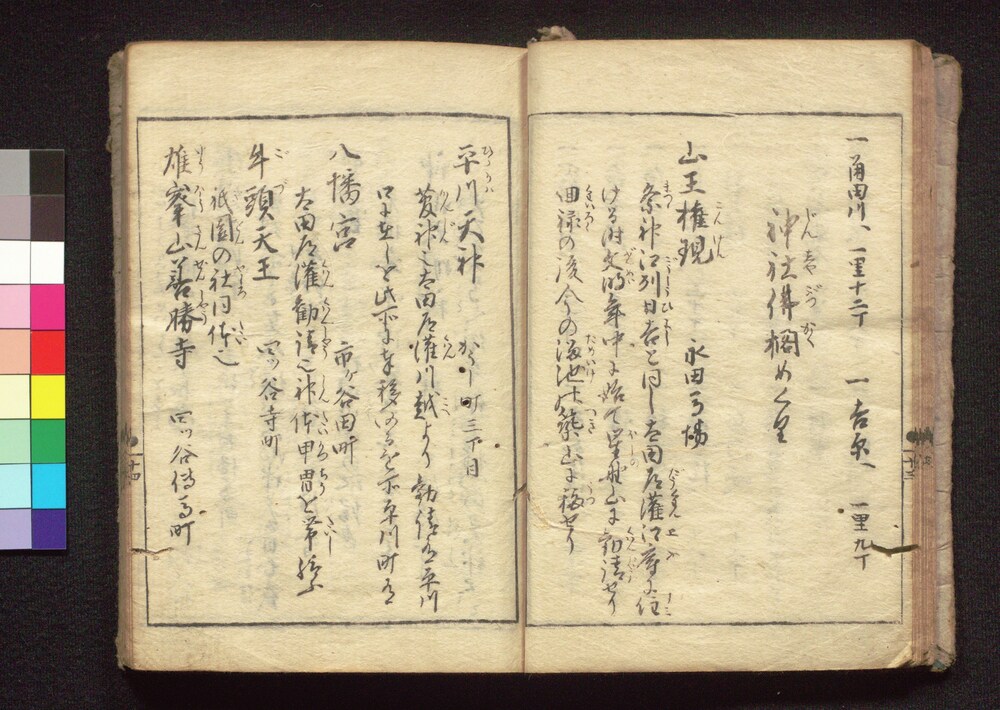 一角田川へ一里十二丁 一吉原へ 一里九丁
神社佛閣めくり
山王権現 永田馬場
祭神江州日吉と同し太田道灌江府に住
ける時文明年中に始て星野山に勧請せり
回禄の後今の溜池に築山に移せり
平川天神 かうし町三丁目
菅神也太田道灌川越より勧請也平川
口に在しを此所に移
八幡宮 市ヶ谷田町
太田道灌勧請也神体甲冑を帯給ふ
牛頭天王 四ッ谷寺町
祇園の社同体也
雄峯山善勝寺 四ッ谷傳馬町